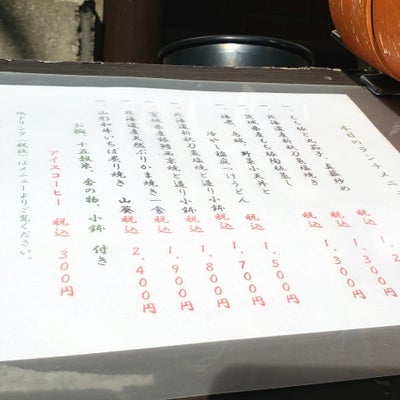 本日のランチメニュ
一、もち豚と丸茄子、豆腐炒め
税込 1,2
一、北海道産新秋刀魚塩焼き
税込 1,300円
一、茨城県産もち豚陶板蒸し
税込 1,300円
一、海老、鳥、野菜小天丼と
冷やし稲庭つけうどん
税込 1,500円
一、北海道産新秋刀魚塩焼と造り小鉢
税込 1,700円
一、宮城県産銀鱈西京焼と造り小鉢
税込 1,800円
一、北海道産天然ぶりかま焼き一食
税込 1,900円
一、山形和牛いちぼ炙り焼き 山葵
税込 2,400円
お椀、十五穀米、香の物、小鉢 付き
アイスコーヒー 税込 300円
他ドリンク(税込)はメニューよりご覧ください。